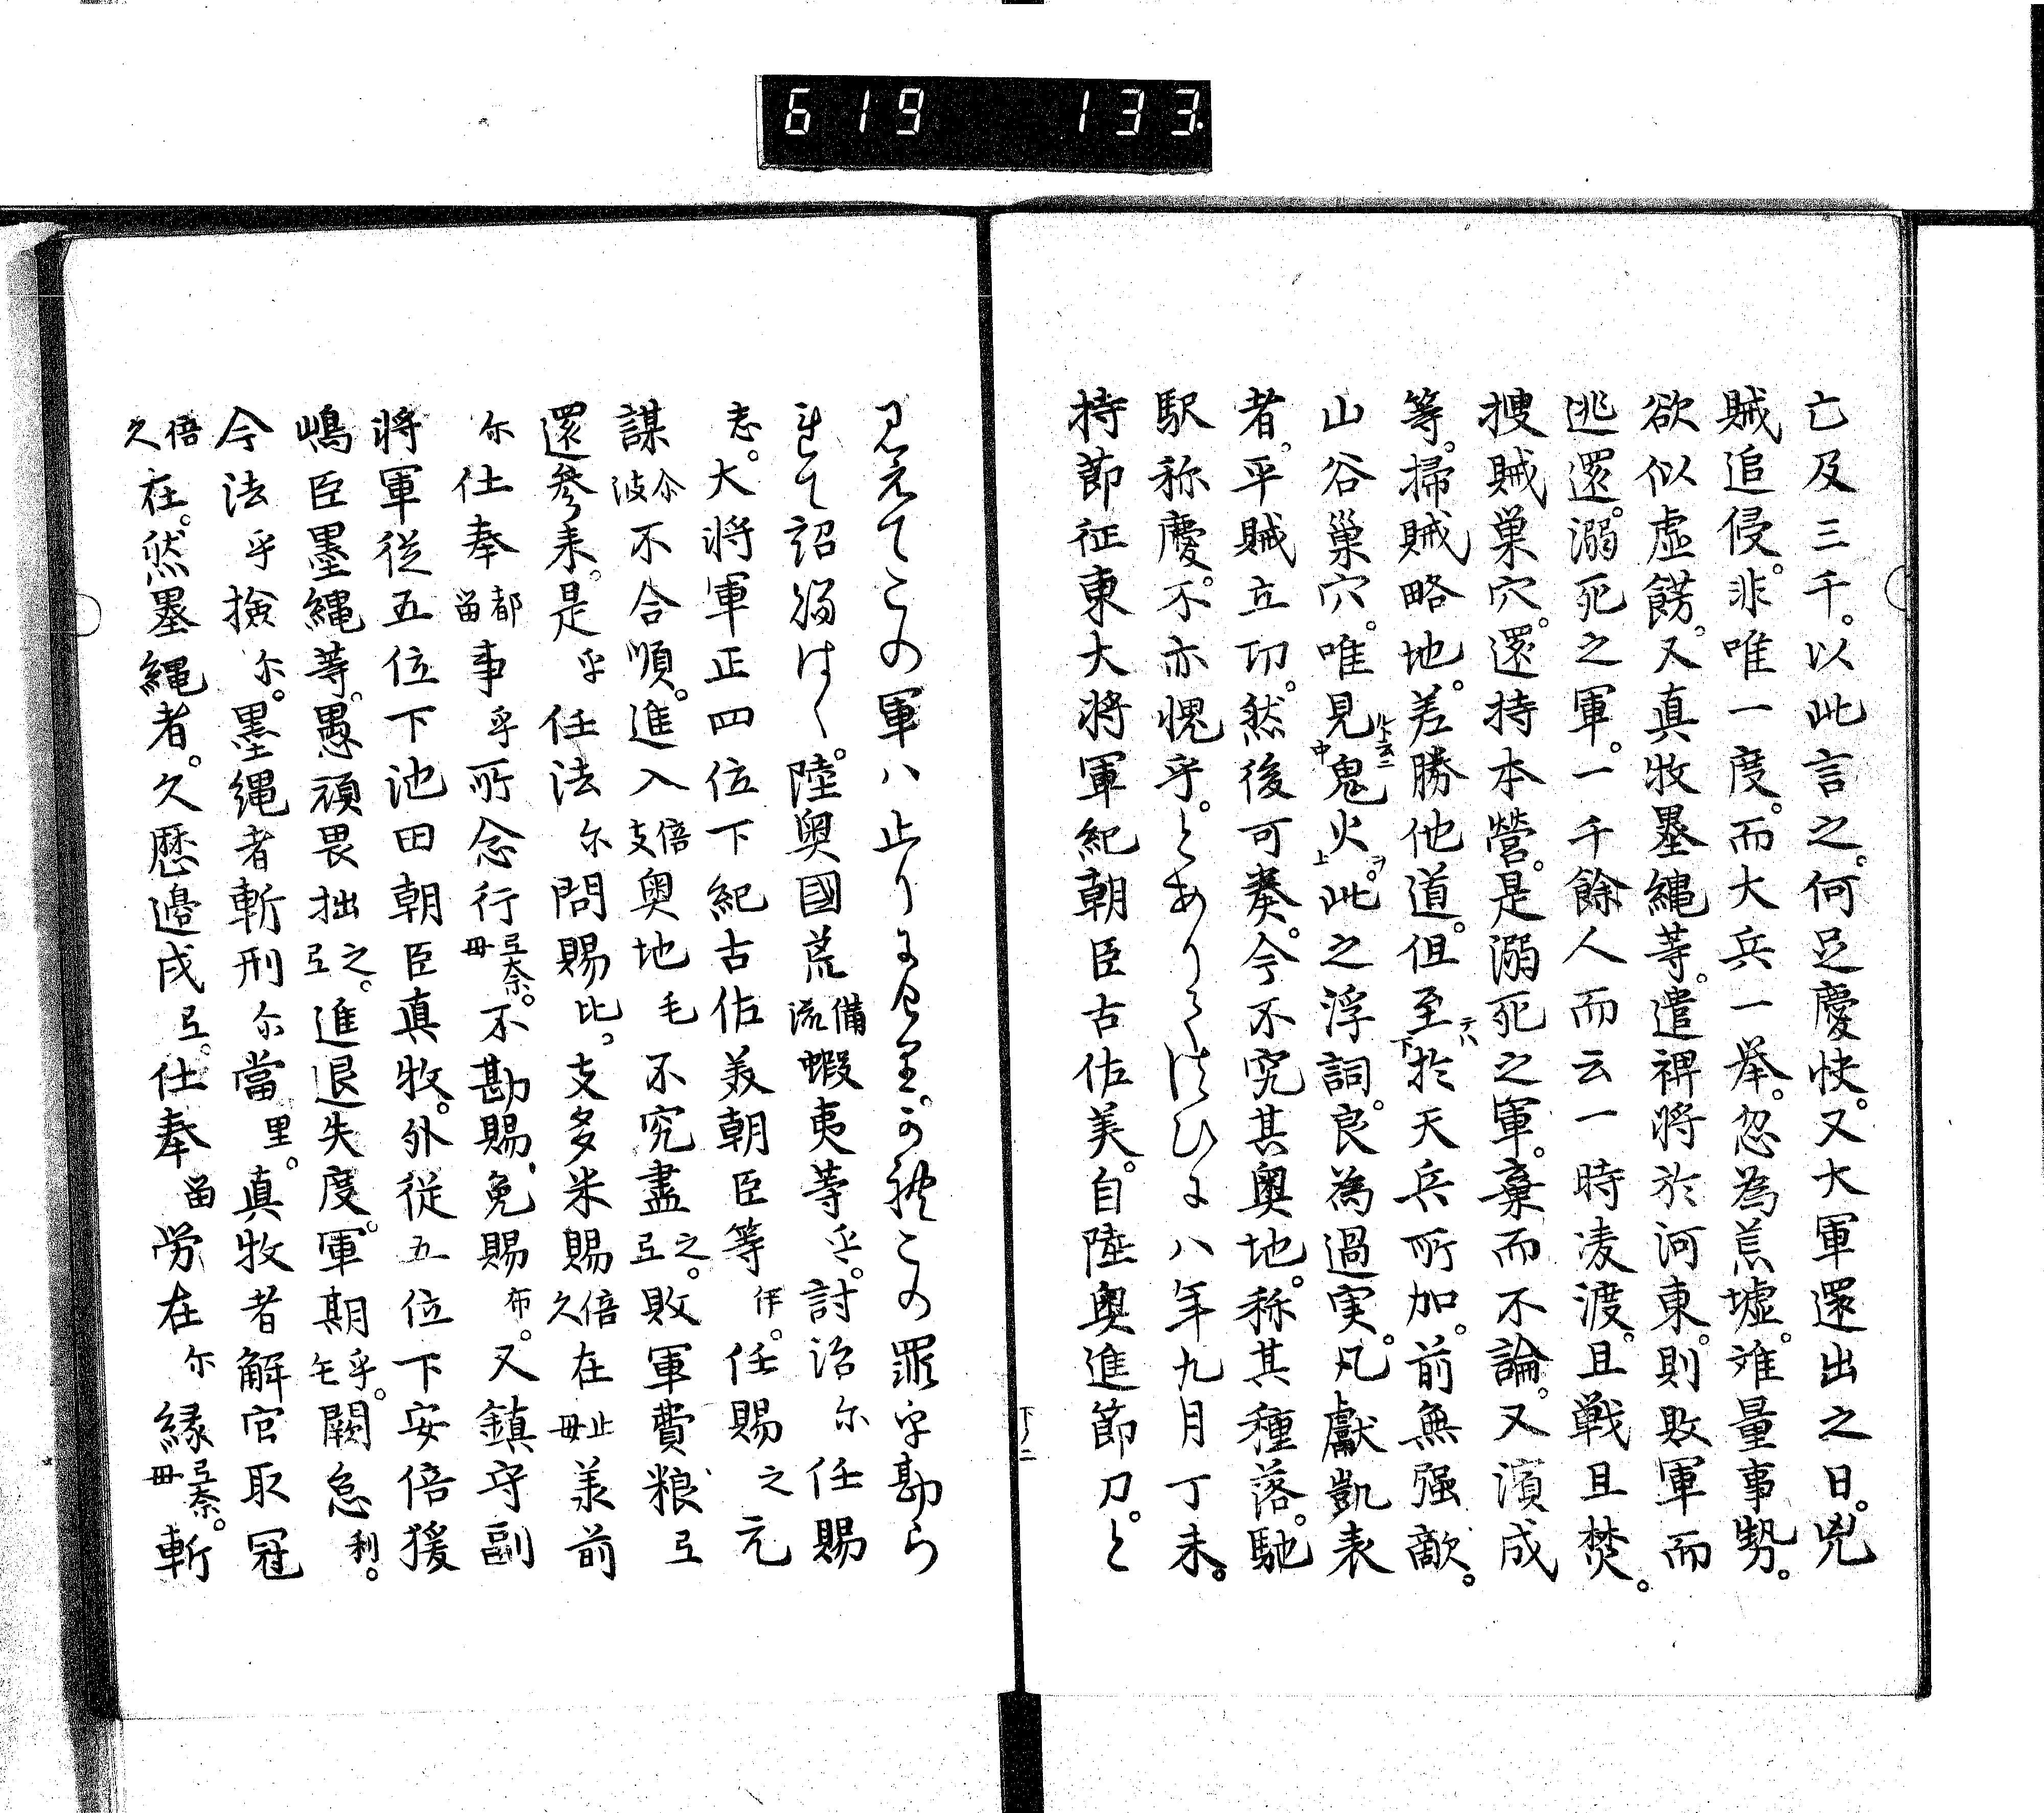 619 133
亡及三千。以此言之。何足慶快。又大軍還出之日。兇
賊追侵。非唯一度。而大兵一举。忽為荒墟。准量事勢。
欲似虚餝。又真牧墨縄等。遣裨将於河東。則敗軍而
逃還。溺死之軍。一千餘人而云一時凌渡。且戦且焚。
捜賊巣穴。還持本營。是溺死之軍。棄而不論。又濱成
等。掃賊略地。差勝他道。但至於天兵所加。前無强敵。
山谷巣穴。唯見鬼火。此之浮詞。良為過実。凡獻凱表
者。平賊立功。然後可奏。今不究其奥地。称其種落。馳
駅称慶。不亦愧乎。とありてつひに八年九月丁未。
持節征東大将軍紀朝臣古佐美。自陸奥進節刀。と
見えてこの軍ハ止りにけり。これこの罪乎勘ら
れて詔給はく。陸奥國荒備流蝦夷等乎。討治尓任賜
志。大将軍正四位下紀古佐美朝臣等伊。任賜之元
謀尓波不合順。進入倍支奥地毛不究盡之弖。敗軍費粮弖
還参来。是乎任法尓問賜比。支多米賜倍久在止毋美前
尓仕奉都留事乎所念行弖奈毋。不勘賜、免賜布。又鎮守副
将軍従五位下池田朝臣真牧。外従五位下安倍猨
嶋臣墨縄等。愚頑畏拙之弖。進退失度。軍期乎毛闕怠利。
今法乎撿尓。墨縄者斬刑尓當里。真牧者解官取冠
倍久在。然墨縄者。久歴邉戍弖。仕奉留労在尓縁弖奈毋。斬